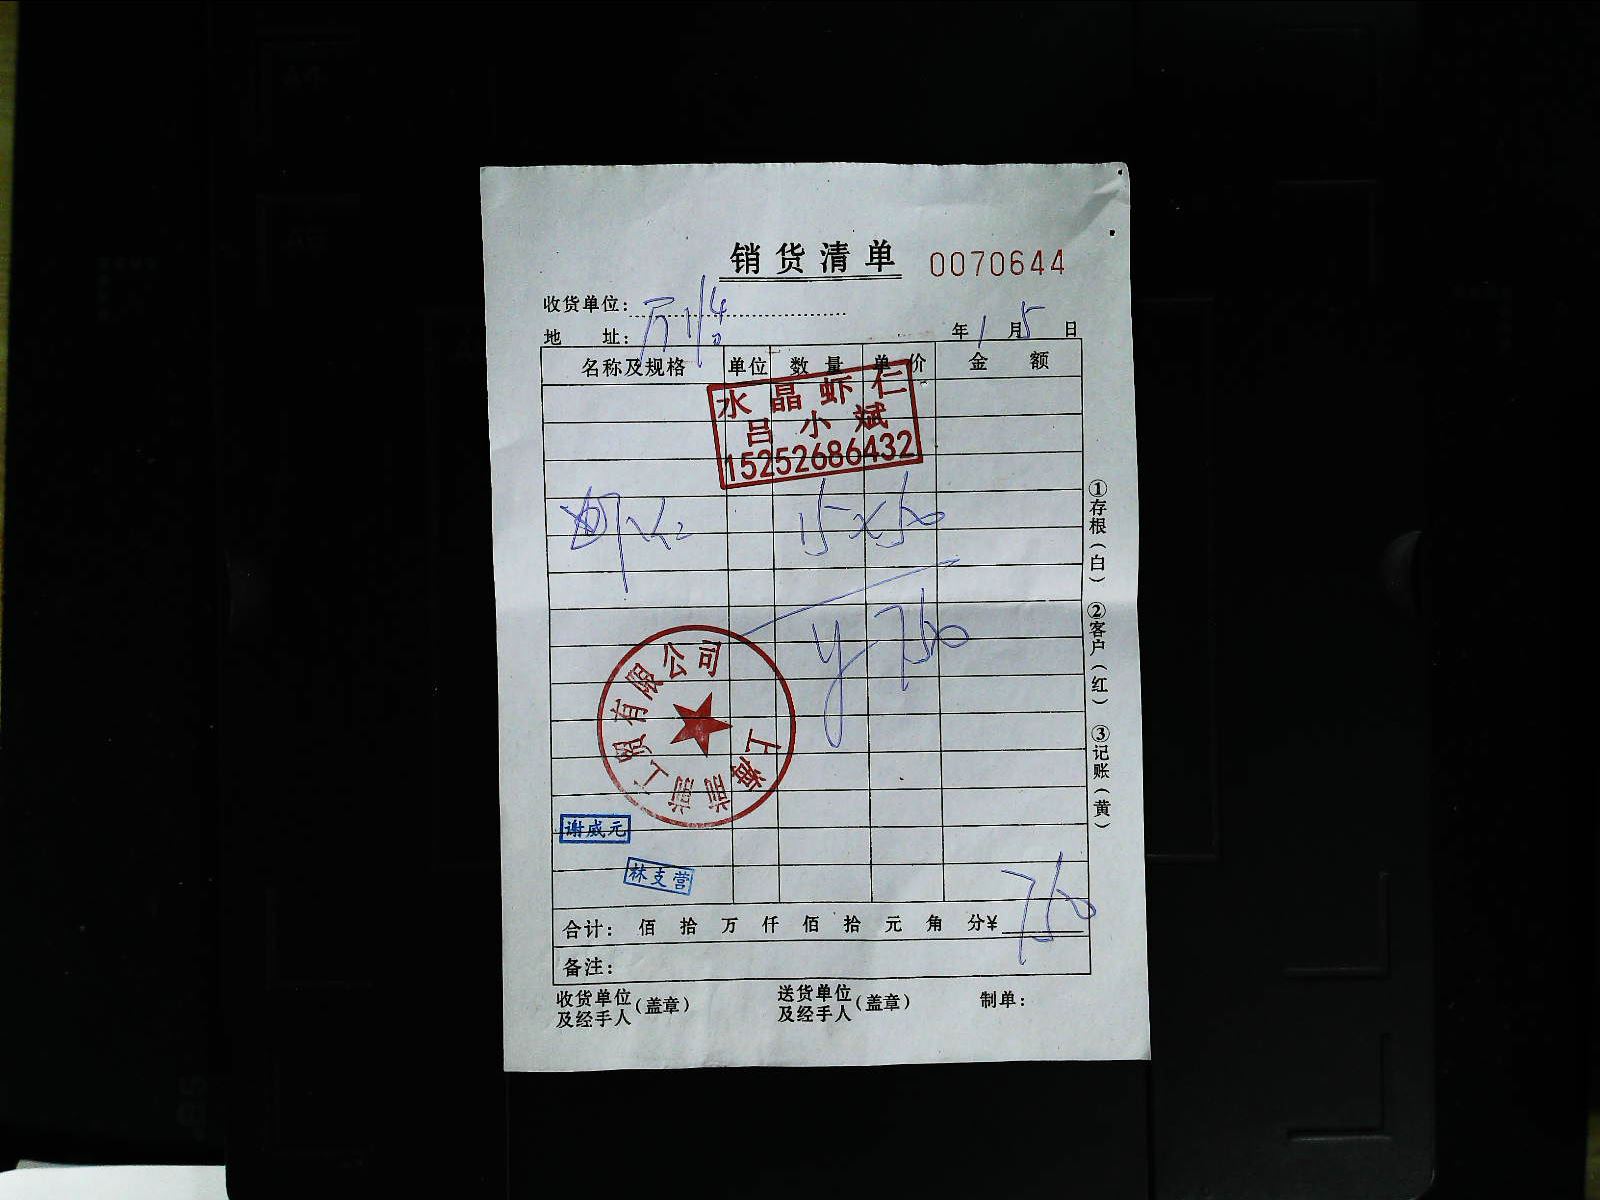 销货清单 0070644
收货单位:
地 址: 年 1 月 5 日
名称及规格 单位 数量 单价 金 额
水晶虾仁
吕小斌
15252686432
15×50
¥750
上海前前工贸有限公司
谢威元
林支营
合计: 佰 拾 万 仟 佰 拾 元 角 分¥ 750
备注:
收货单位及经手人(盖章) 送货单位及经手人(盖章) 制单:
①存根(白) ②客户(红) ③记账(黄)